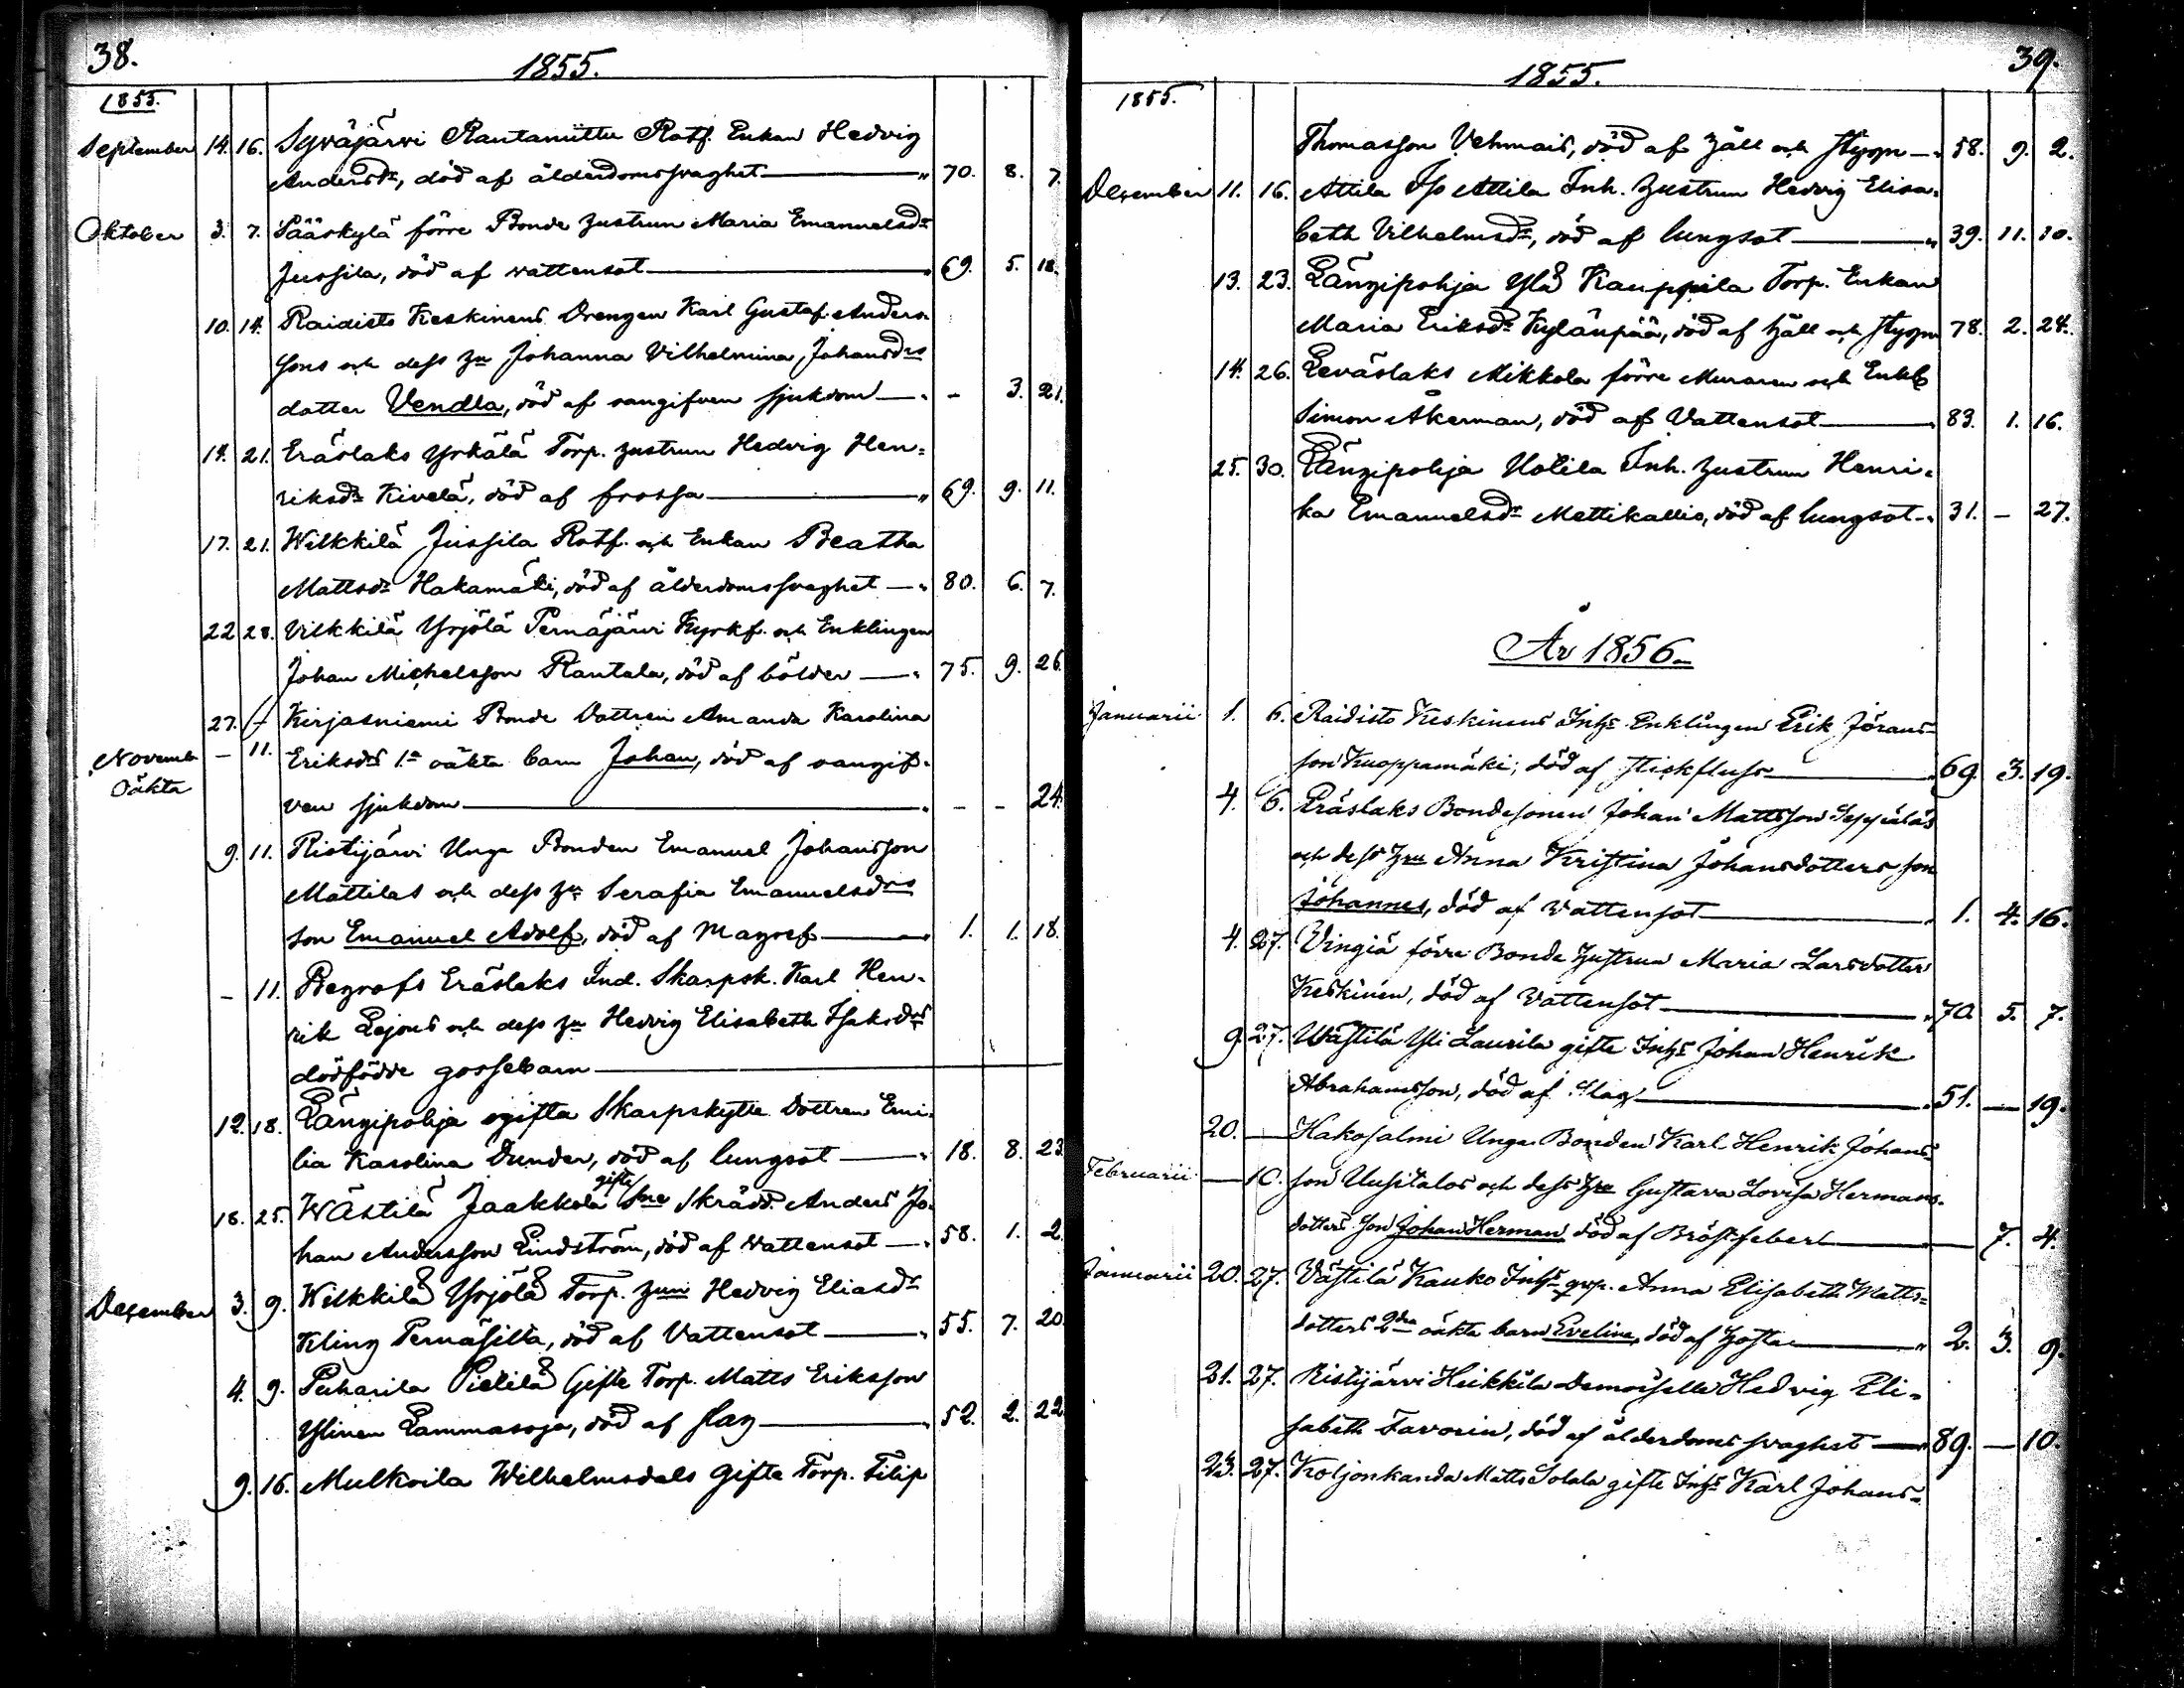 38.
1855.
1855.
September 14. 16. Syväjärvi Rantaniittu Rotf. Enkan Hedvig
Andersdr, död af ålderdomssvaghet — " 70. 8. 7.
Oktober 3. 7. Pääskylä förre Bonde hustrun Maria Emanuelsdr
Jussila, död af vattensot — " 69. 5. 18.
10. 14. Raidisto Keskinens Drengen Karl Gustaf Anders
sons och dess hu Johanna Vilhelmina Johansdrs
dotter Vendla, död af oangifven sjukdom — " - 3. 21.
14. 21. Eräslaks Yrkälä Torp. hustrun Hedvig Hen=
riksdr Kivelä, död af frossa — " 69. 9. 11.
17. 21. Wilkkilä Jussila Rotf. och Enkan Beatha
Mattsdr Hakamäki, död af ålderdomssvaghet — " 80. 6. 7.
22 28. Vilkkilä Yrjölä Pernäjärvi Kyrkf. och Enklingen
Johan Michelsson Rantala, död af bölder — " 75. 9. 26.
27. - Kirjasniemi Bonde Dottren Amanda Karolina
Novemb - 11. Eriksdrs 1a oäkta barn Johan, död af oangif=
Oäkta
ven sjukdom — " - - 24.
9. 11. Ristijärvi Unge Bonden Emanuel Johansson
Mattilas och dess hu Serafia Emanuelsdrs
son Emanuel Adolf, död af Magref — " 1. 1. 18.
- 11. Begrofs Eräslaks Ind. Skarpsk. Karl Hen=
rik Lejons och dess hu Hedvig Elisabeth Isaksdrs
dödfödde gossebarn —
12. 18. Längipohja ogifta Skarpskytte dottren Emi=
lia Karolina Dunder, död af lungsot — " 18. 8. 23.
gifte
18. 25. Wästilä Jaakkola Sne Skrädd. Anders Jo=
han Andersson Lindström, död af vattensot — " 58. 1. 2.
December 3. 9. Wilkkilä Yrjölä Torp. hun Hedvig Eliasdr
Kling Pernäsillä, död af Vattensot — " 55. 7. 20.
4. 9. Puharila Pietilä Gifte Torp. Matts Eriksson
Ylinen Lammasoja, död af slag — " 52. 2. 22.
9. 16. Mulkoila Wilhelmsdals Gifte Torp. Filip
39.
1855.
1855.
Thomasson Vehmais, död af håll och styng — " 58. 9. 2.
December 11. 16. Attila Iso Attila Inh. hustrun Hedvig Elisa=
beth Vilhelmsdr, död af lungsot — " 39. 11. 10.
13. 23. Längipohja Ylä Kauppila Torp. Enkan
Maria Eriksdr Kylänpää, död af håll och styng 78. 2. 24.
14. 26. Leväslaks Mikkola förre Muraren och Enkl
Simon Åkerman, död af Vattensot — " 83. 1. 16.
25. 30. Längipohja Uotila Inh. hustrun Henri=
ka Emanuelsdr Mettikallio, död af lungsot — " 31. - 27.
År 1856.
Januarii 1. 6. Raidisto Keskinens Inhs Enklingen Erik Jörans=
son Knoppamäki, död af stickfluss — " 69. 3. 19.
4. 6. Eräslaks Bondesonen Johan Mattsson Seppäläs
och dess hru Anna Kristina Johansdotters son
Johannes, död af vattensot — " 1. 4. 16.
4. 27. Vingiä förre Bonde hustrun Maria Larsdotter
Keskinen, död af vattensot — " 70. 5. 7.
9. 27. Wästilä Yli Laurila gifte Inhs Johan Henrik
Abrahamsson, död af slag — " 51. — 19.
20. — Hakosalmi Unge Bonden Karl Henrik Johans=
Februarii — 10. son Uusitalos och dess hru Gustava Lovisa Hermans=
dotters son Johan Herman död af Bröstfeber — " — 7. 4.
Januarii 20. 27. Västilä Kauko Inhs qvp. Anna Elisabeth Matts=
dotters 2dra oäkta barn Eveline, död af hosta — " 2. 3. 9.
21. 27. Ristijärvi Heikkilä Demoiselle Hedvig Eli=
sabeth Favorin, död af ålderdoms svaghet — " 89. — 10.
23. 27. Koljonkanda Matts Solala gifte Inhs Karl Johans=